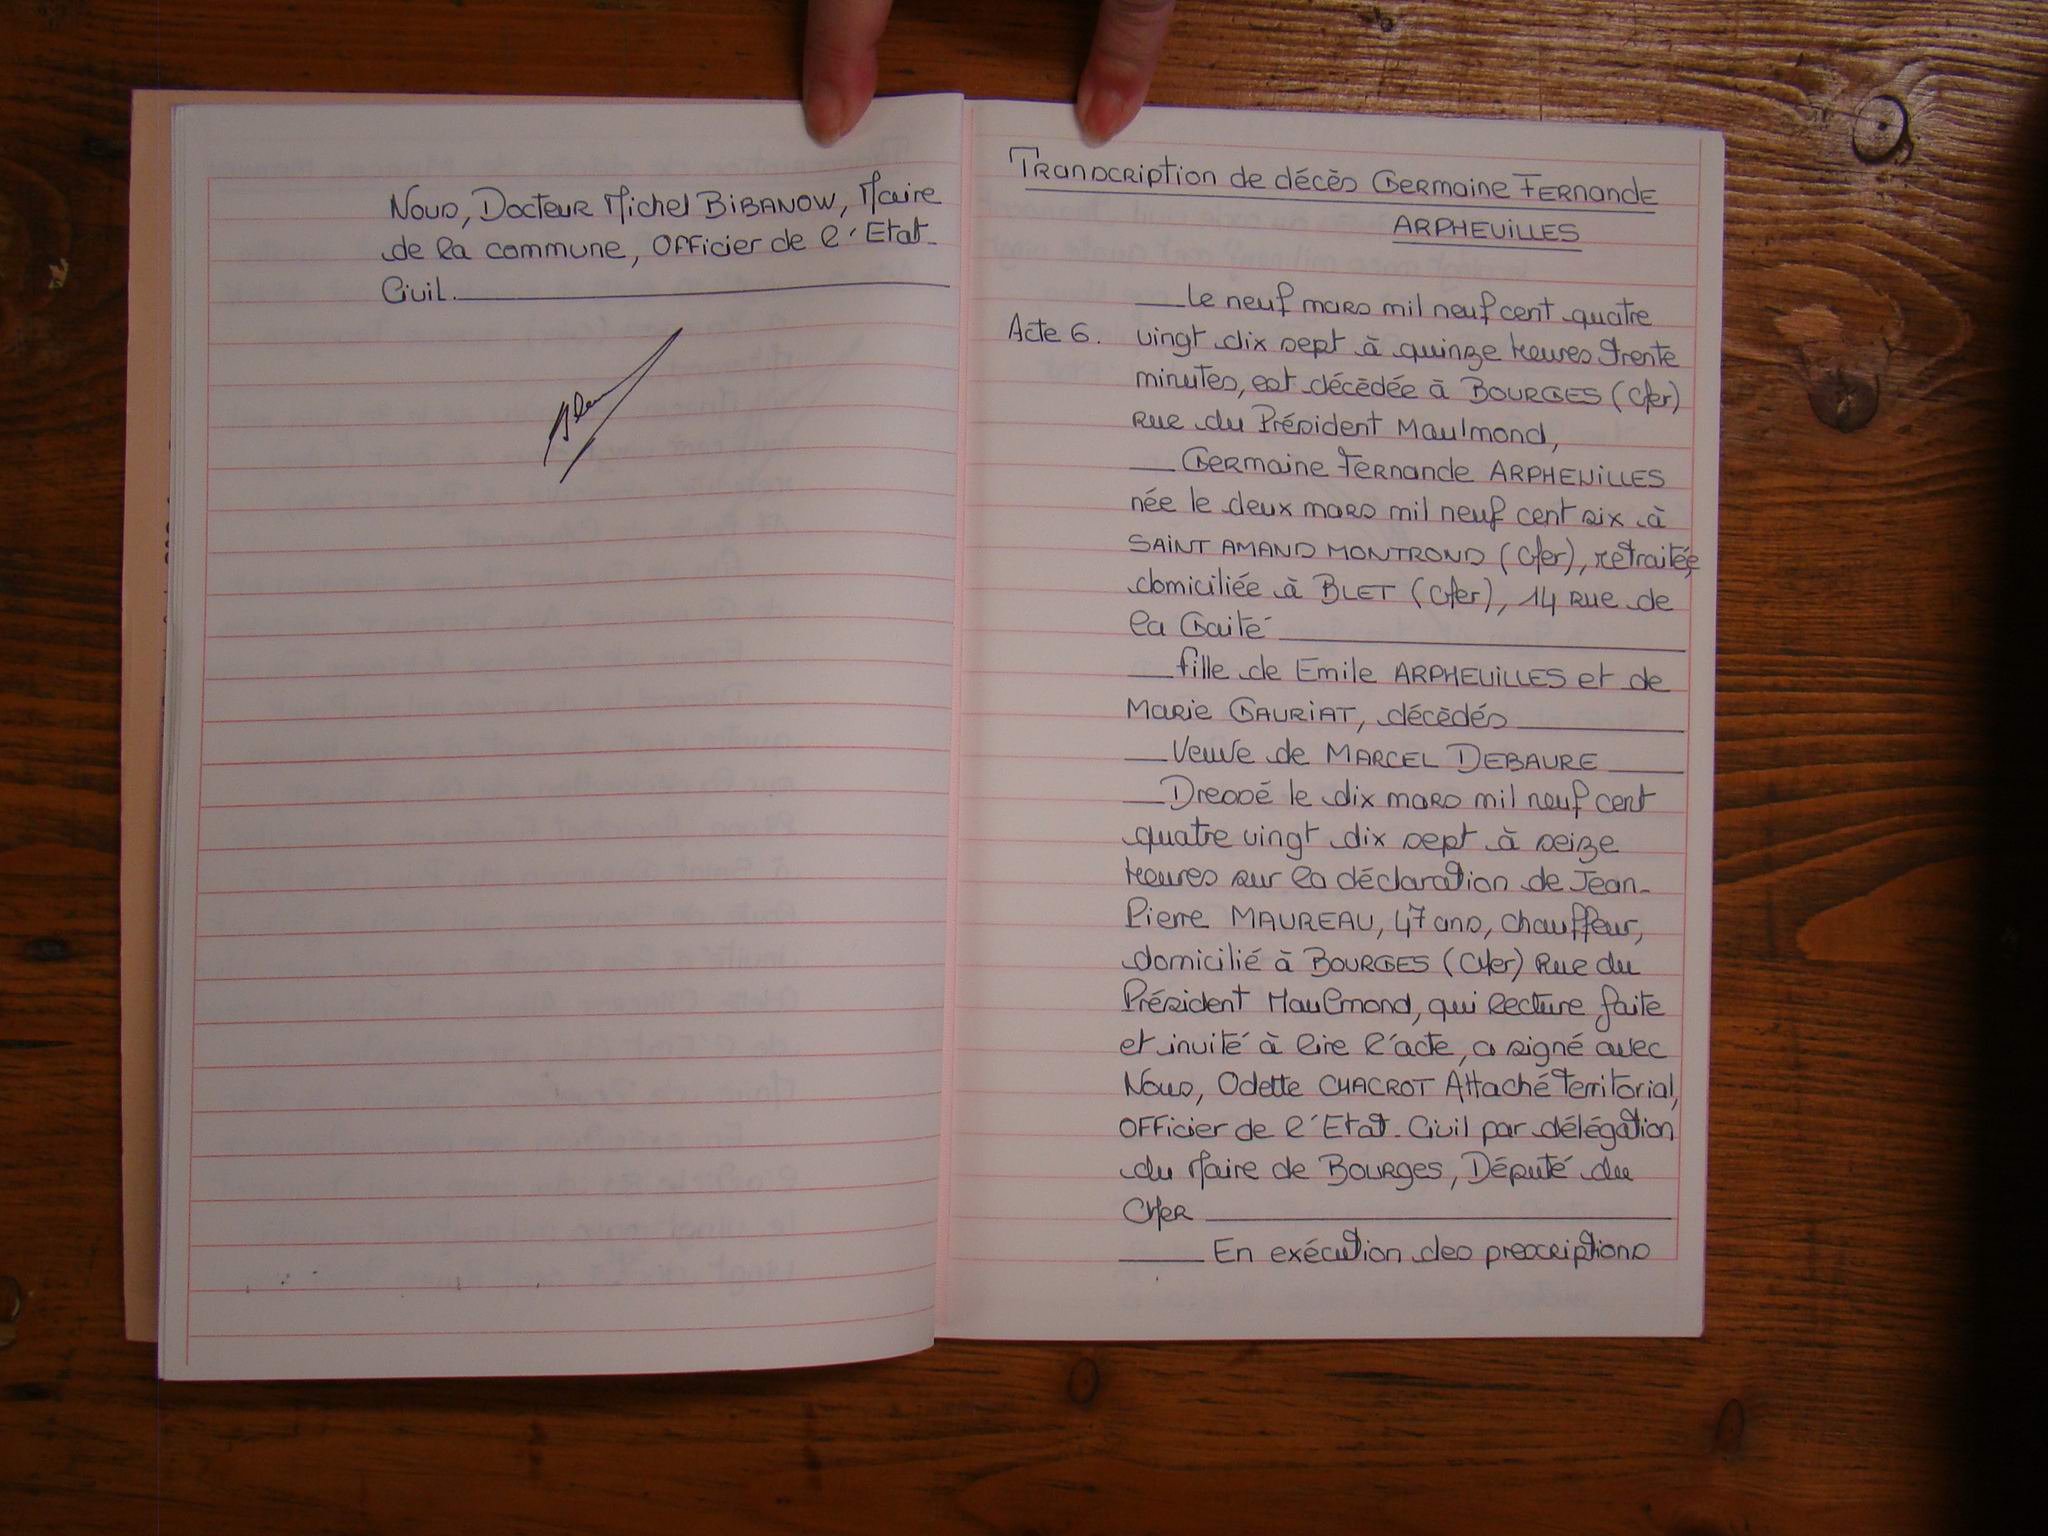 Nous, Docteur Michel BIBANOW, Maire
de la commune, Officier de l'Etat-
Civil.
Transcription de décès Germaine Fernande
ARPHEUILLES
Le neuf mars mil neuf cent quatre
Acte 6. vingt dix sept à quinze heures trente
minutes, est décédée à BOURGES (Cher)
Rue du Président Maulmond,
Germaine Fernande ARPHEUILLES
née le deux mars mil neuf cent six à
SAINT AMAND MONTROND (Cher), retraitée,
domiciliée à BLET (Cher), 14 Rue de
la Gaité
fille de Emile ARPHEUILLES et de
Marie GAURIAT, décédés
Veuve de MARCEL DEBAURE
Dressé le dix mars mil neuf cent
quatre vingt dix sept à seize
heures sur la déclaration de Jean-
Pierre MAUREAU, 47 ans, chauffeur,
domicilié à BOURGES (Cher) Rue du
Président Maulmond, qui lecture faite
et invité à lire l'acte, a signé avec
Nous, Odette CHACROT Attaché Territorial,
Officier de l'Etat-Civil par délégation
du Maire de Bourges, Député du
Cher
En exécution des prescriptions